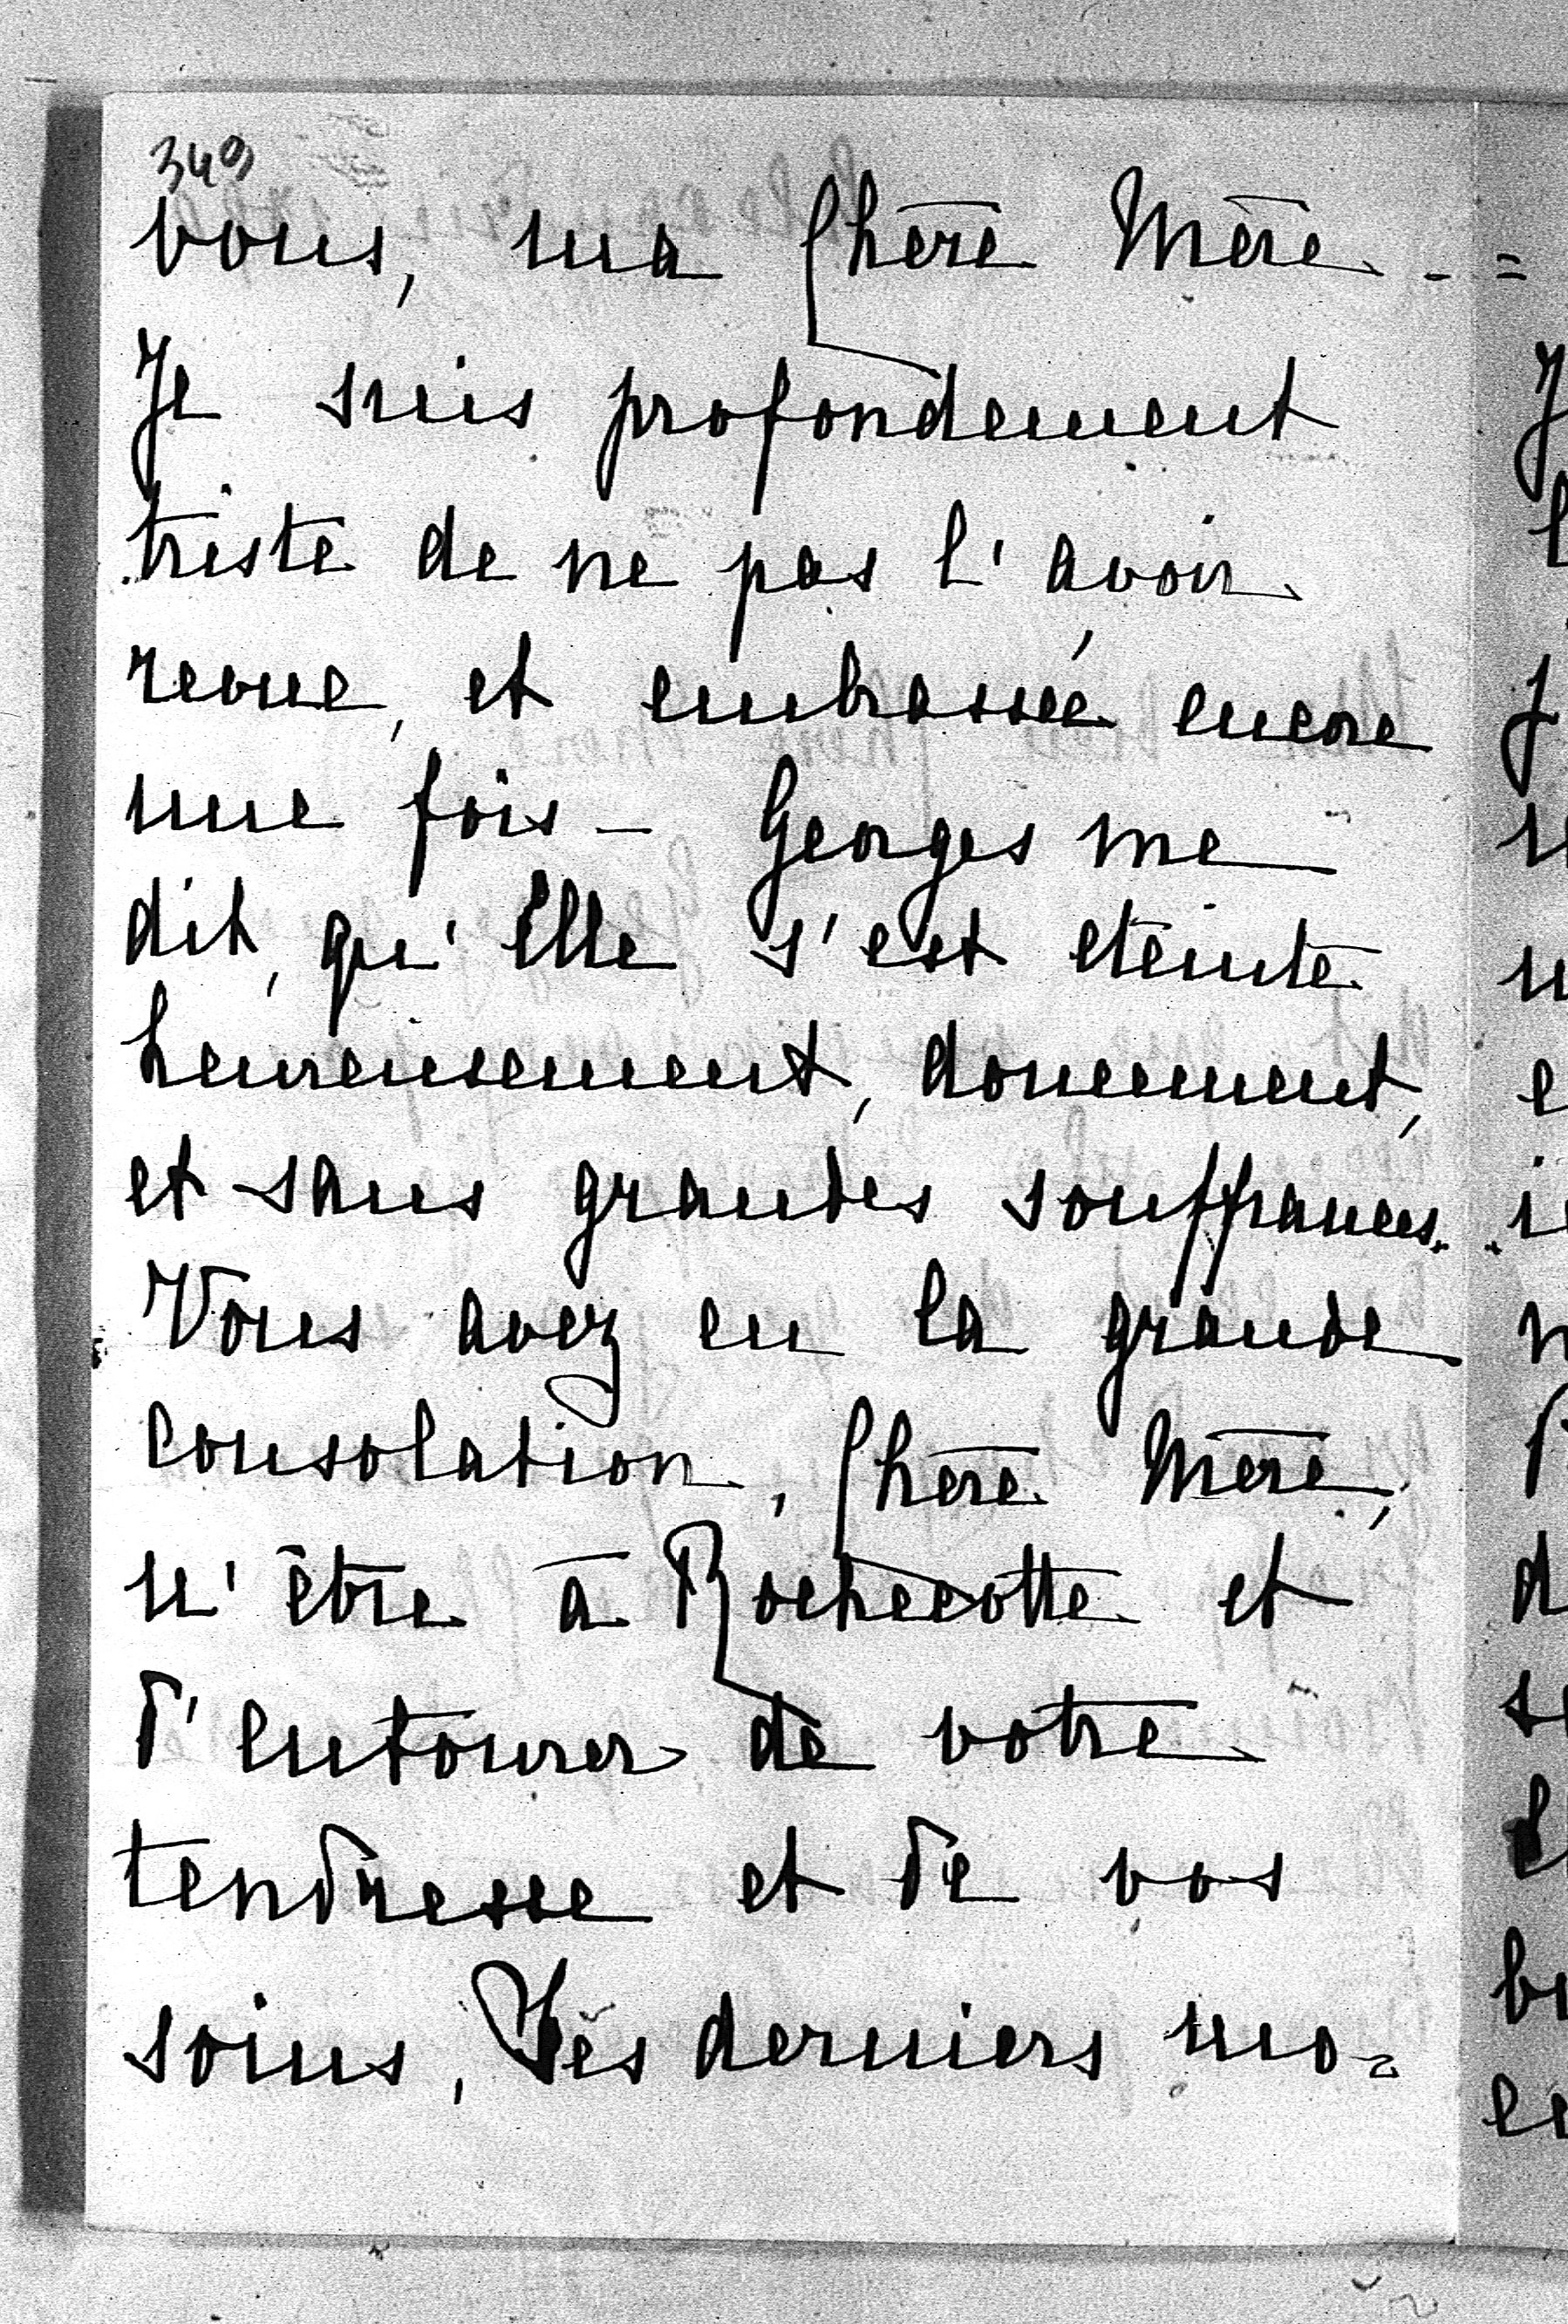 349
vous, ma Chère Mère - =
Je suis profondement
triste de ne pas l'avoir
revue, et embrassée encore
une fois - Georges me
dit, qu'Elle s'est eteinte
heureusement, doucement,
et sans grandes souffrances.
Vous avez eu la grande
Consolation, Chère Mère,
d'être à Rochecotte et
d'entourer de votre
tendresse et de vos
soins, Ses derniers mo=